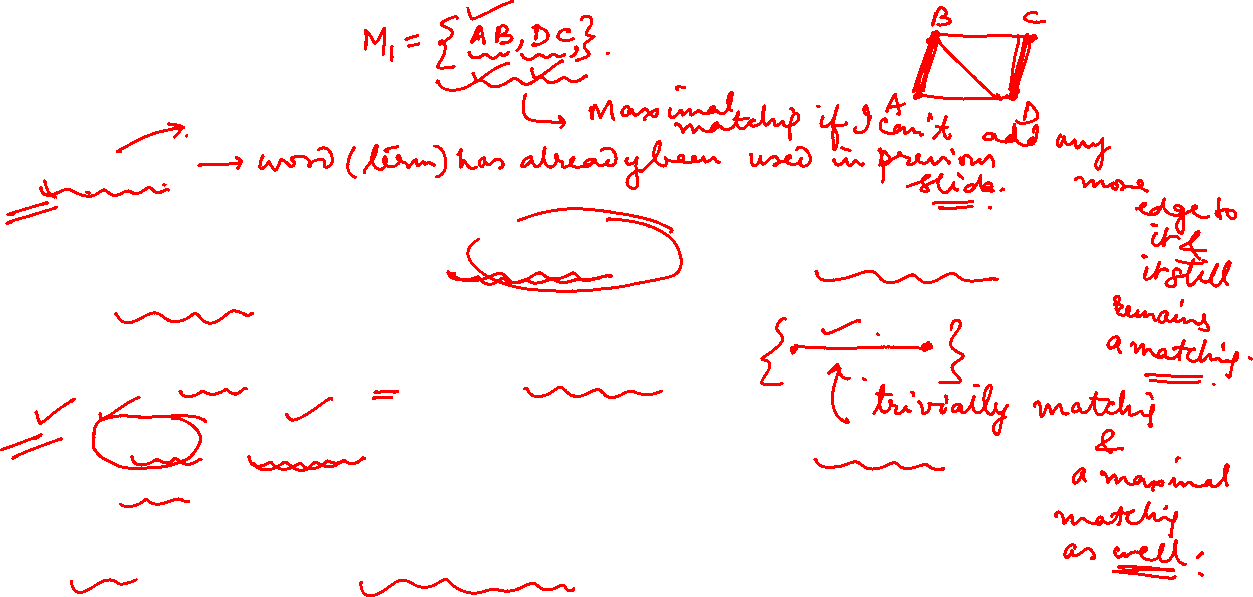 M₁ = { AB, DC, }.
B C
A D
→ Maximal matching if I can't add any more edge to it & it still remains a matching.
→ word (term) has already been used in previous slide.
{ }
trivially matching
&
a maximal
matching
as well.